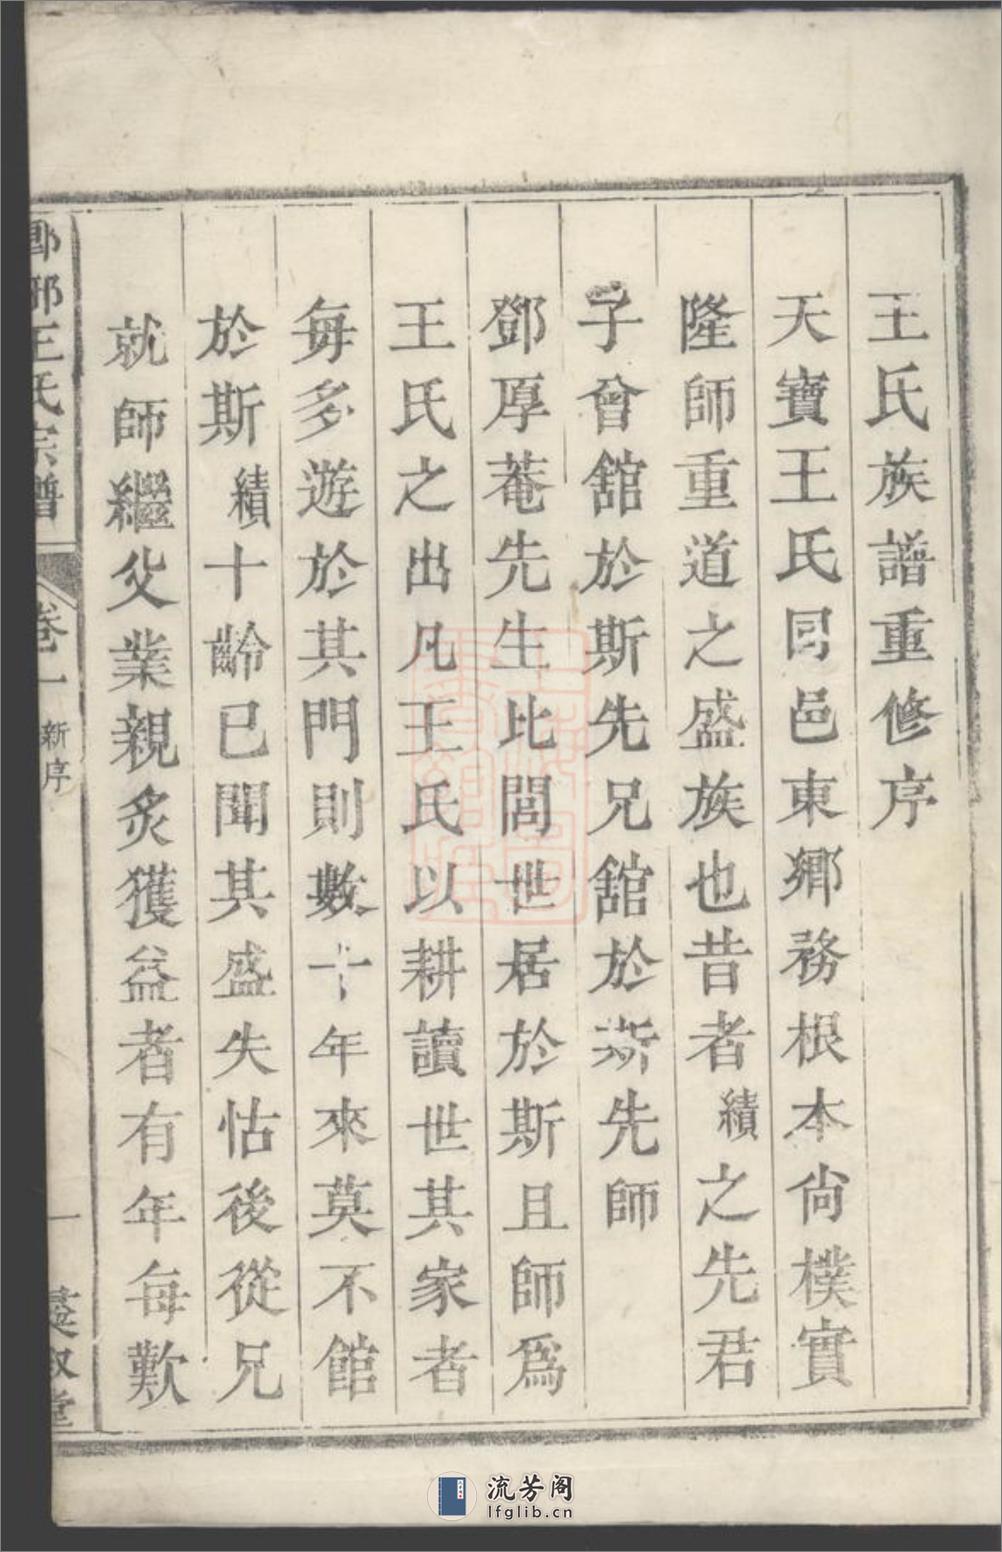 王氏族譜重修序
天寶王氏同邑東鄉務根本尙樸實
隆師重道之盛族也昔者績之先君
子會舘於斯先兄舘於斯先師
鄧厚菴先生比閭世居於斯且師爲
王氏之出凡王氏以耕讀世其家者
每多遊於其門則數十年來莫不館
於斯績十齡已聞其盛失怙後從兄
就師繼父業親炙獲益者有年每歎
王氏宗譜
卷一
新序
一
流芳阁
lfglib.cn